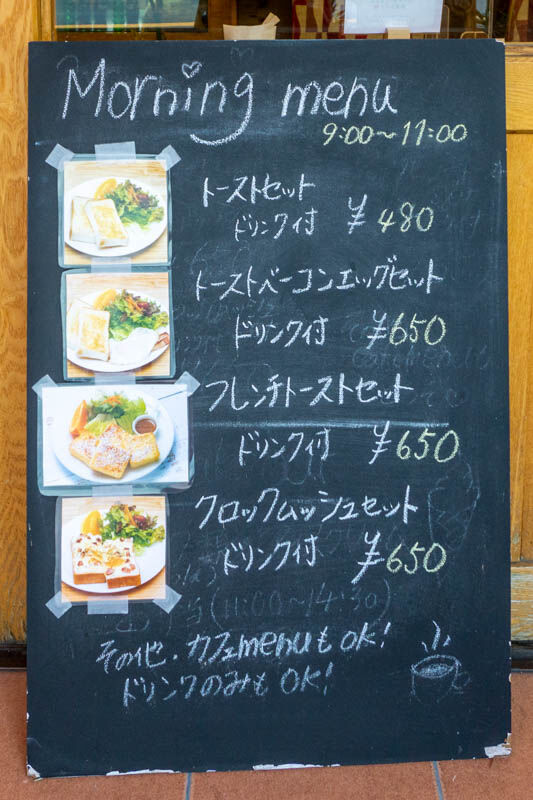 Morning menu
9:00~11:00
トーストセット
ドリンク付 ¥480
トーストベーコンエッグセット
ドリンク付 ¥650
フレンチトーストセット
ドリンク付 ¥650
クロックムッシュセット
ドリンク付 ¥650
(11:00~14:30)
その他.カフェmenuも OK!
ドリンクのみも OK!